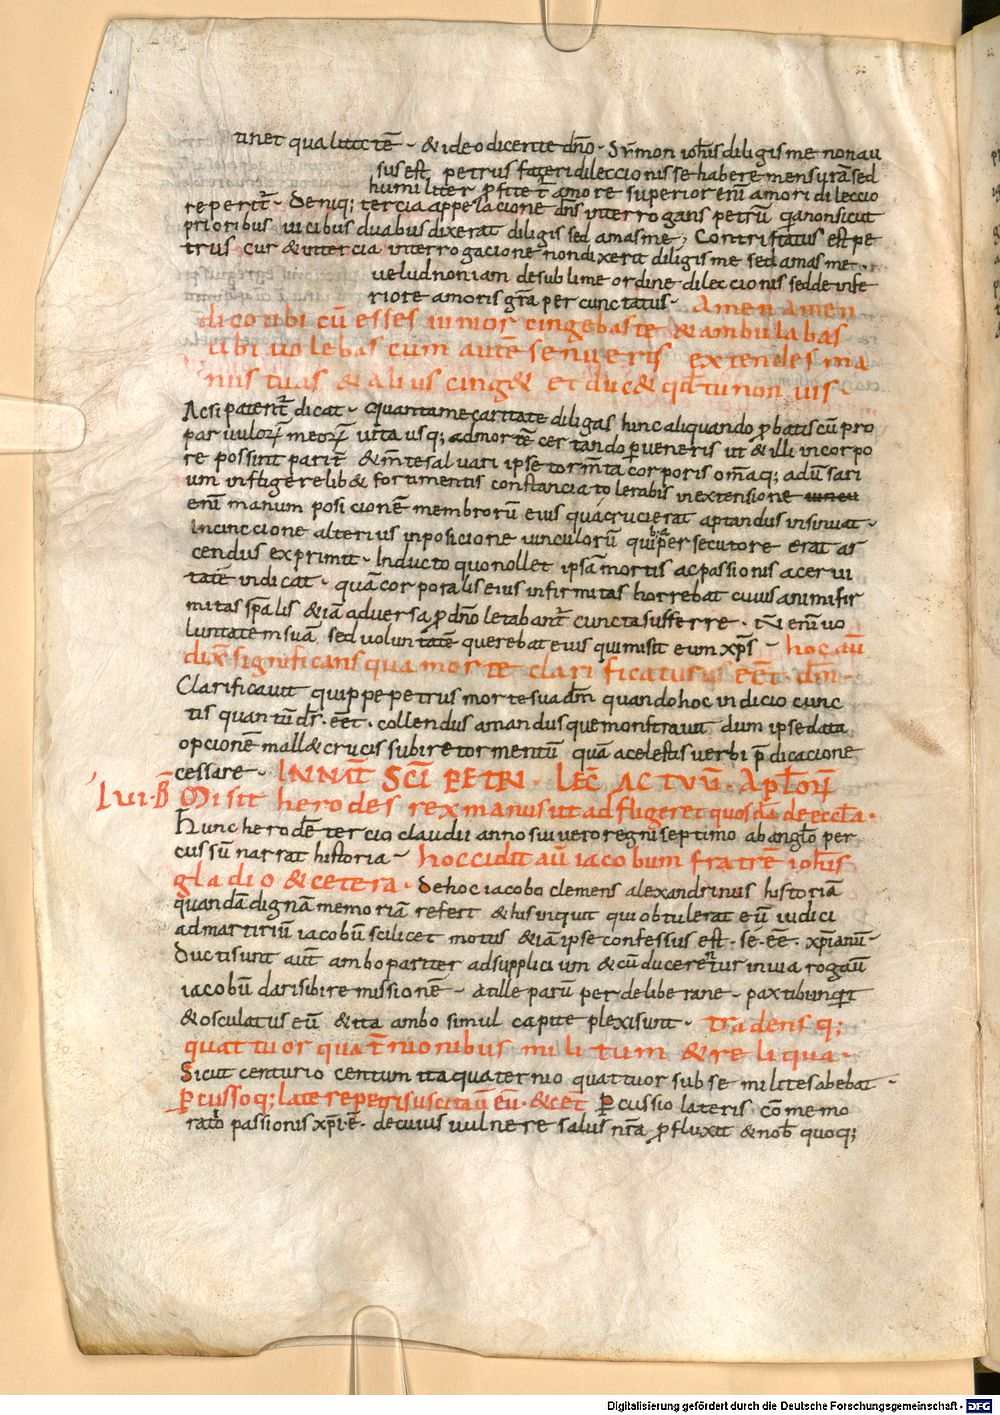 tinet qualitatē · & ideo dicente dno · Symon iohis diligis me non au
sus est, petrus fateri dileccionis se habere mensurā sed
humiliter profitet amore superior eni amori dileccio
reperit · Deniq; tercia appelacione dns interrogans petrū qa non sicut
prioribus uicibus duabus dixerat diligis sed amas me, Contristatus est pe
trus cur & in tercia interrogacione non dixerit diligis me sed amas me ·
uelud non iam de sublime ordine dileccionis sed de infe
riore amoris gra percunctatus · Amen amen
dico tibi cū esses iunior cingebas te & ambulabas
ubi uolebas cum autē senueris extendes ma
nus tuas & alius cing& et duc& qd tu non uis ·
Ac si patent dicat · Quanta me caritate diligas hinc aliquando probatis cū pro
paruulorum meorum uita usq; ad mortē certando perueneris ut & illi in corpo
re possint parit & mtes aluari ipse tormta corporis omaq; aduersari
um infligere lib& fortimentis constancia tolerabis in extensione
enī manum posicionē membrorū eius qua crucierat aptandus insinuat ·
In cinccione alterius inposicione uinculorū quib a persecutore erat as
cendus exprimit · Inducto quo nollet ipsā mortis ac passionis acerui
tatē indicat · quā corporalis eius infirmitas horrebat cuius animi fir
mitas spalis & iā aduersa p dno letabant cuncta sufferre · n enī uo
luntatem suā sed uoluntatē querebat eius qui misit eum xps · hoc aū
dix significans qua morte clarificaturus eet · dm ·
Clarificauit quippe petrus morte sua dm quando hoc indicio cunc
tis quantū ds · eet · collendus amandusque monstrauit dum ipse data
opcionē mall& crucis subire tormentū quā a celestis uerbi pdicacione
cessare · IN NAT SCI PETRI · LEC ACTVU · APLORUM
LVI · B Misit herodes rex manus ut adfligeret quosdā de eccla ·
Hunc herodē tercio claudii anno sui uero regni septimo ab anglo per
cussū narrat historia · hoccidit aū iacobum fratrē iohis
gladio & cetera · De hoc iacobo clemens alexandrinus historiā
quandā dignā memoriā refert & his inquit qui obtulerat eū iudici
ad martiriū iacobū scilicet motus & iā ipse confessus est · se · ee · xpianū ·
Ducti sunt aut ambo pariter ad supplicium & cū ducerentur in uia rogaū
iacobū dari sibi remissionē · at ille parū per deliberans · pax tibi inquit
& osculatus eū & ita ambo simul capite plexi sunt · tradens q;
quattuor quatnionibus militum & reliqua ·
Sicut centurio centum ita quaternio quattuor sub se milites abebat ·
Percussoq; latere petri suscitaū eū · & cet Percussio lateris cōmemo
ratio passionis xpi · e · de cuius uulnere salus nra pfluxit & nob quoq;
Digitalisierung gefördert durch die Deutsche Forschungsgemeinschaft - DFG